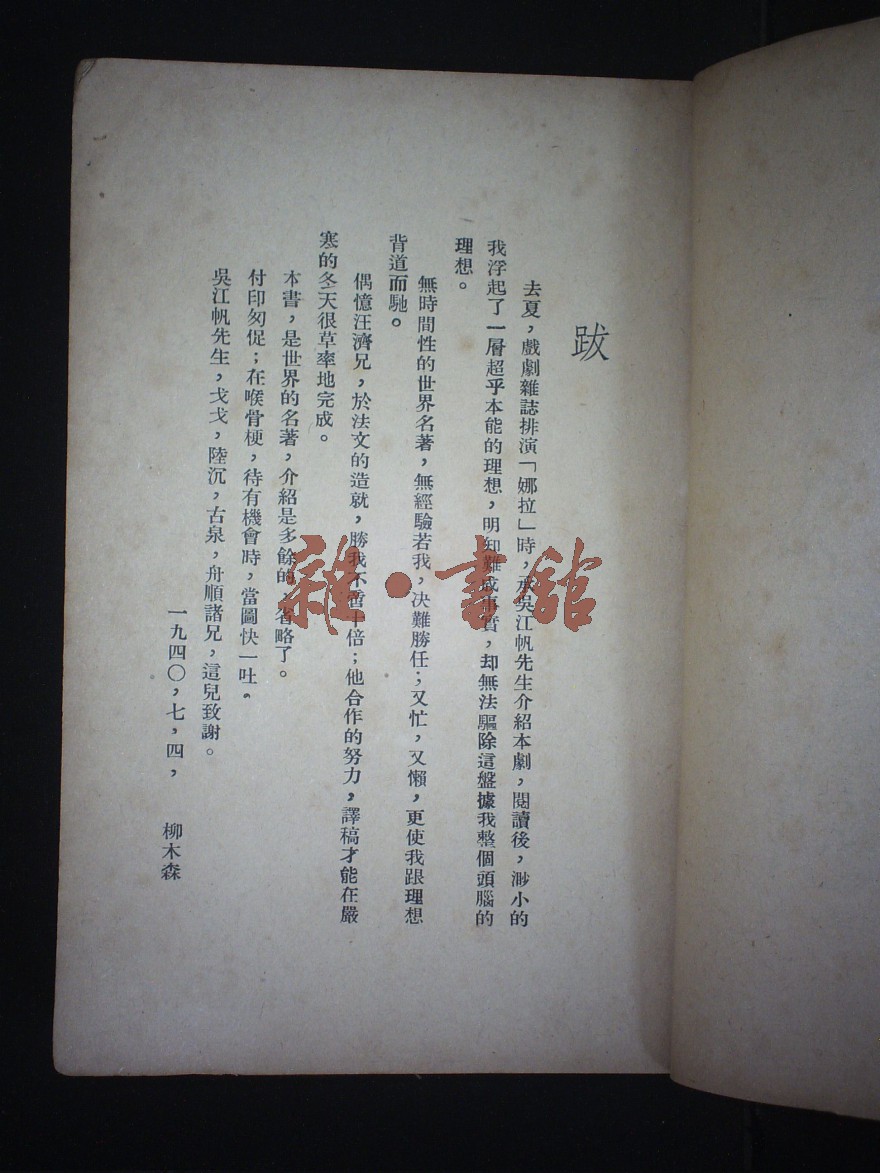 跋
去夏，戲劇雜誌排演「娜拉」時，承吳江帆先生介紹本劇，閱讀後，渺小的
我浮起了一層超乎本能的理想，明知難成事實，却無法驅除這盤據我整個頭腦的
理想。
無時間性的世界名著，無經驗若我，决難勝任；又忙，又懶，更使我跟理想
背道而馳。
偶憶汪濟兄，於法文的造就，勝我不啻十倍；他合作的努力，譯稿才能在嚴
寒的冬天很草率地完成。
本書，是世界的名著，介紹是多餘的，省略了。
付印匆促；在喉骨梗，待有機會時，當圖快一吐。
吳江帆先生，戈戈，陸沉，古泉，舟順諸兄，這兒致謝。
一九四〇，七，四，　柳木森
雜·書館